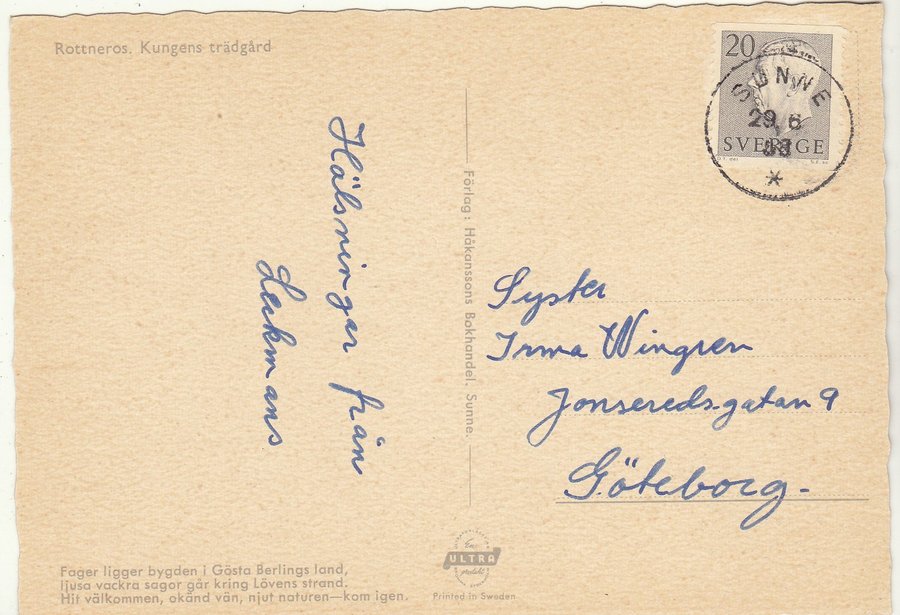 Rottneros. Kungens trädgård
20
SVERIGE
SUNNE
29 6
Hälsningar från
Leckmans
Förlag: Håkanssons Bokhandel, Sunne
Syster
Irma Wingren
Jonseredsgatan 9
Göteborg.
Fager ligger bygden i Gösta Berlings land,
ljusa vackra sagor går kring Lövens strand.
Hit välkommen, okänd vän, njut naturen—kom igen.
En
ULTRA
produkt
Printed in Sweden